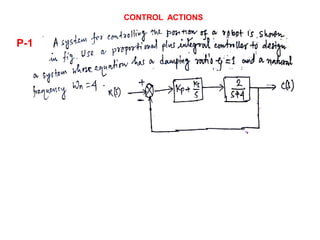 CONTROL ACTIONS
P-1
A system for controlling the position of a robot is shown.
in fig. Use a proportional plus integral controller to design
a system whose equation has a damping ratio ξ=1 and a natural
frequency Wn=4.
R(s) + - Kp+ KI/S 2/S+4 C(s)